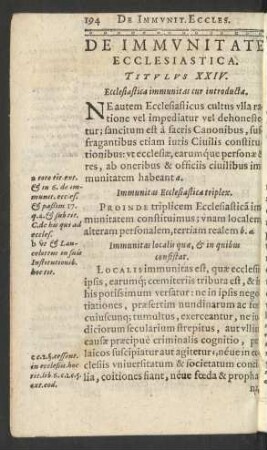 194 DE IMMVNIT. ECCLES.
DE IMMVNITATE
ECCLESIASTICA.
TITVLVS XXIV.
Ecclesiastica immunitas cur introducta.
NE autem Ecclesiasticus cultus vlla ra
tione vel impediatur vel dehoneste
tur; sancitum est à sacris Canonibus, suf
fragantibus etiam iuris Ciuilis constitu
tionibus: vt ecclesiæ, earumque personæ &
res, ab oneribus & officiis ciuilibus im
munitatem habeant a.
Immunitas Ecclesiastica triplex.
PROINDE triplicem Ecclesiasticã im
munitatem constituimus; vnam localem
alteram personalem, tertiam realem b.
Immunitas localis quæ, & in quibus
consistat.
LOCALIS immunitas est, quæ ecclesii
ipsis, earumque cœmiteriis tributa est, & i
his potissimum versatur: ne in ipsis nego
tiationes, præsertim nundinarum ac fe
cuiuscunque; tumultus, exerceantur, ne iu
diciorum secularium strepitus, aut vlli
causæ præcipuè criminalis cognitio, pe
laicos suscipiatur aut agitetur c, néue in ec
clesiis vniuersitatum & societatum conci
lia, coitiones fiant, néue fœda & propha
na
a toto tit. ext.
& in 6. de im-
munit. eccles.
& passim 17.
q. 4. & sub tit.
C. de his qui ad
eccles.
b Vt & Lan-
celottus in suis
Institutionib.
hoc tit.
c c. 2. §. cessent.
in ecclesiis hoc
tit. lib. 6. c. 1. & 5.
ext. eod.